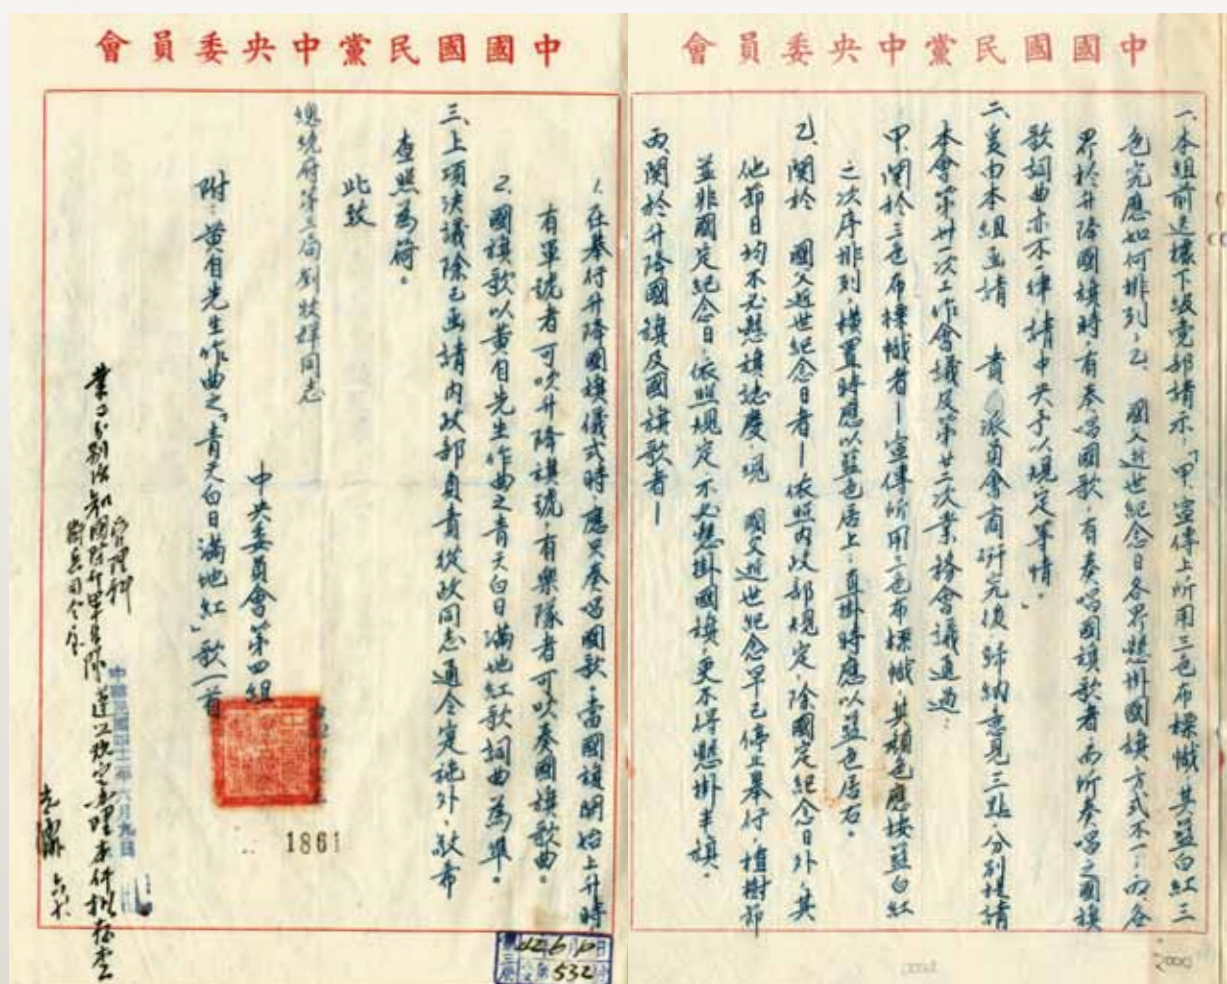 中國國民黨中央委員會
一、本組前迭據下級党部請示：「甲、宣傳上所用三色布標幟，其藍白紅三
色究應如何排列，乙、國父逝世紀念日各界懸掛國旗方式不一，丙、各
界於升降國旗時，有奏唱國歌，有奏唱國旗歌者，而所奏唱之國旗
歌詞曲亦不一律，請中央予以規定等情。」
二、爰由本組函請 貴 派員會商研究後，歸納意見三點，分別提請
本會第卅一次工作會議及第廿二次業務會議通過：
甲、関於三色布標幟者—宣傳所用三色布標幟，其顏色應按藍白紅
之次序排列，橫置時應以藍色居上，直掛時應以藍色居右。
乙、関於 國父逝世紀念日者—依照內政部規定，除國定紀念日外，其
他節日均不必懸旗誌慶，現 國父逝世紀念早已停止舉行，植樹節
並非國定紀念日，依照規定不必懸掛國旗，更不得懸掛半旗。
丙、関於升降國旗及國旗歌者—
中國國民黨中央委員會
1.在舉行升降國旗儀式時，應只奏唱國歌，當國旗開始上升時
有軍號者可吹升降旗號，有樂隊者可吹奏國旗歌曲。
2.國旗歌以黃自先生作曲之青天白日滿地紅歌詞曲為準。
三、上項決議除已函請內政部負責從政同志通令实施外，敬希
查照為荷。
此致
總統府第三局劉牧群同志
中央委員會第四組
附：黃自先生作曲之「青天白日滿地紅」歌一首
中華民國四十二年六月九日
1861
管理科
42 6 10
532